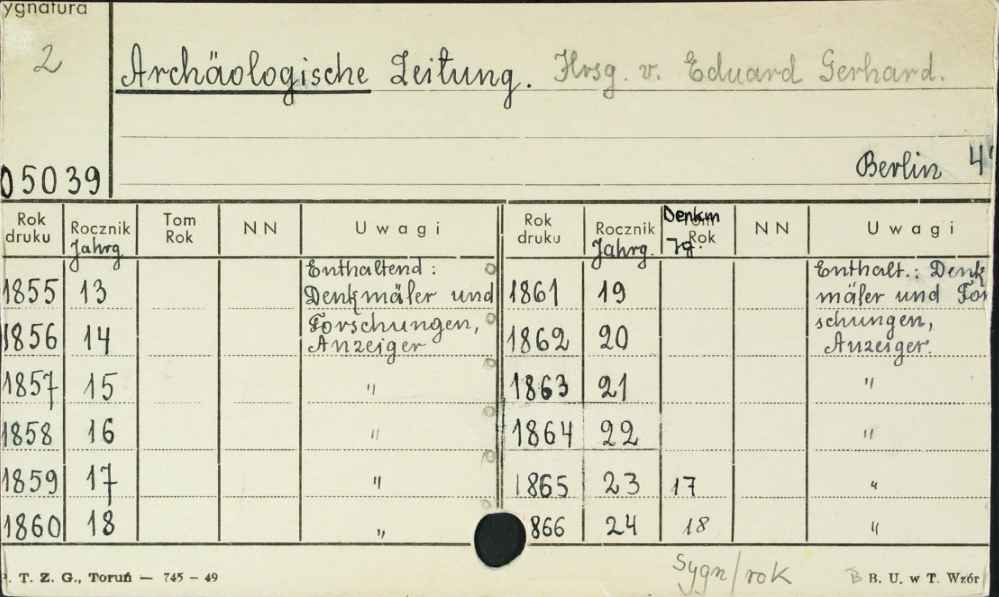 ygnatura
2
Archäologische Zeitung. Hrsg. v. Eduard Gerhard.
Berlin 4°
05039
Rok druku Rocznik Jahrg Tom Rok NN Uwagi Rok druku Rocznik Jahrg. Denkm Jg. Tom Rok NN Uwagi
Enthaltend: Enthalt.: Denk
1855 13 Denkmäler und 1861 19 mäler und For
Forschungen, schungen,
1856 14 Anzeiger 1862 20 Anzeiger.
1857 15 " 1863 21 "
1858 16 " 1864 22 "
1859 17 " 1865 23 17 "
1860 18 " 866 24 18 "
Sygn/rok
. T. Z. G., Toruń — 745 – 49 B B. U. w T. Wzór